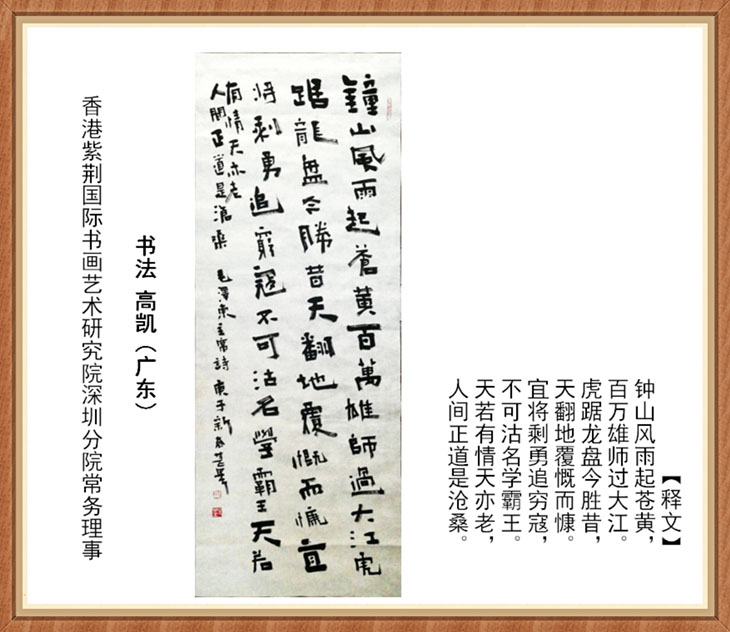 【释文】
钟山风雨起苍黄，
百万雄师过大江。
虎踞龙盘今胜昔，
天翻地覆慨而慷。
宜将剩勇追穷寇，
不可沽名学霸王。
天若有情天亦老，
人间正道是沧桑。
鐘山風雨起蒼黄百萬雄師過大江虎
踞龍盘今勝昔天翻地覆慨而慷宜
将剩勇追窮寇不可沽名學霸王天若
有情天亦老
人間正道是滄桑 毛澤東主席詩 庚子新春
书法 高凯（广东）
香港紫荆国际书画艺术研究院深圳分院常务理事